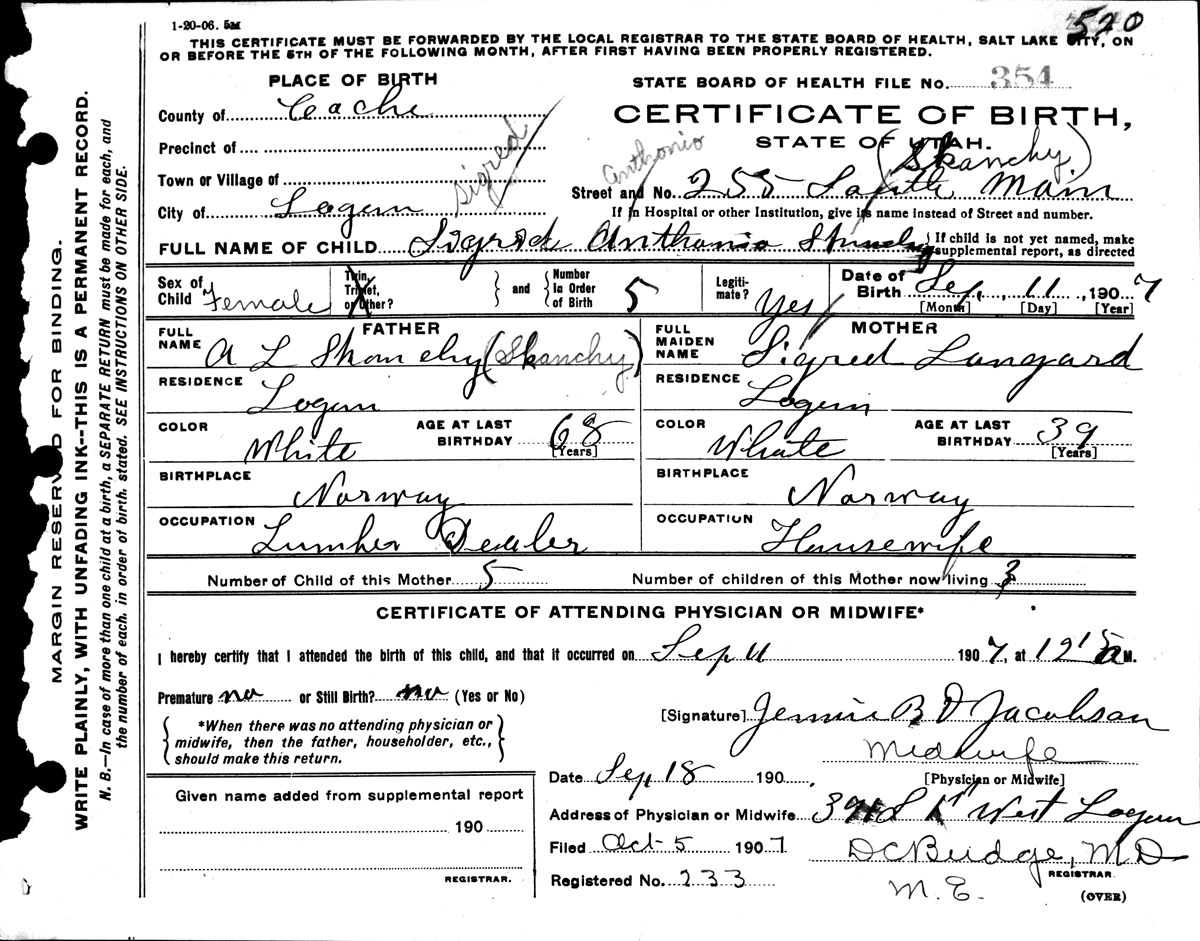 1-20-06. 5M
520
THIS CERTIFICATE MUST BE FORWARDED BY THE LOCAL REGISTRAR TO THE STATE BOARD OF HEALTH, SALT LAKE CITY, ON
OR BEFORE THE 5TH OF THE FOLLOWING MONTH, AFTER FIRST HAVING BEEN PROPERLY REGISTERED.
PLACE OF BIRTH
STATE BOARD OF HEALTH FILE No. 354
County of Cache
CERTIFICATE OF BIRTH,
Precinct of
STATE OF UTAH.
Sigred
Anthonio
(Skanchy)
Town or Village of
Street and No. 255 South Main
City of Logan
If in Hospital or other Institution, give its name instead of Street and number.
FULL NAME OF CHILD Sigred Anthonio Skanchy { If child is not yet named, make
supplemental report, as directed
Sex of Child Female
Twin, Triplet, or Other?
} and { Number In Order of Birth 5
Legitimate? Yes
Date of Birth Sep, 11, 1907
[Month] [Day] [Year]
FATHER
MOTHER
FULL NAME A L Skanchy (Skanchy)
FULL MAIDEN NAME Sigred Langard
RESIDENCE Logan
RESIDENCE Logan
COLOR White
AGE AT LAST BIRTHDAY 68 [Years]
COLOR White
AGE AT LAST BIRTHDAY 39 [Years]
BIRTHPLACE Norway
BIRTHPLACE Norway
OCCUPATION Lumber Dealer
OCCUPATION Housewife
Number of Child of this Mother 5
Number of children of this Mother now living 3
CERTIFICATE OF ATTENDING PHYSICIAN OR MIDWIFE*
I hereby certify that I attended the birth of this child, and that it occurred on Sep 11 1907, at 12 15 a M.
Premature no or Still Birth? no (Yes or No)
{ *When there was no attending physician or
midwife, then the father, householder, etc.,
should make this return. }
[Signature] Jennie B D Jacobson
Midwife
[Physician or Midwife]
Date Sep 18 190
Given name added from supplemental report
Address of Physician or Midwife West Logan
190
Filed Oct 5 1907
DC Budge, MD
REGISTRAR.
REGISTRAR
Registered No. 233
M. E.
(OVER)
MARGIN RESERVED FOR BINDING.
WRITE PLAINLY, WITH UNFADING INK--THIS IS A PERMANENT RECORD.
N. B.—In case of more than one child at a birth, a SEPARATE RETURN must be made for each, and
the number of each, in order of birth, stated. SEE INSTRUCTIONS ON OTHER SIDE.